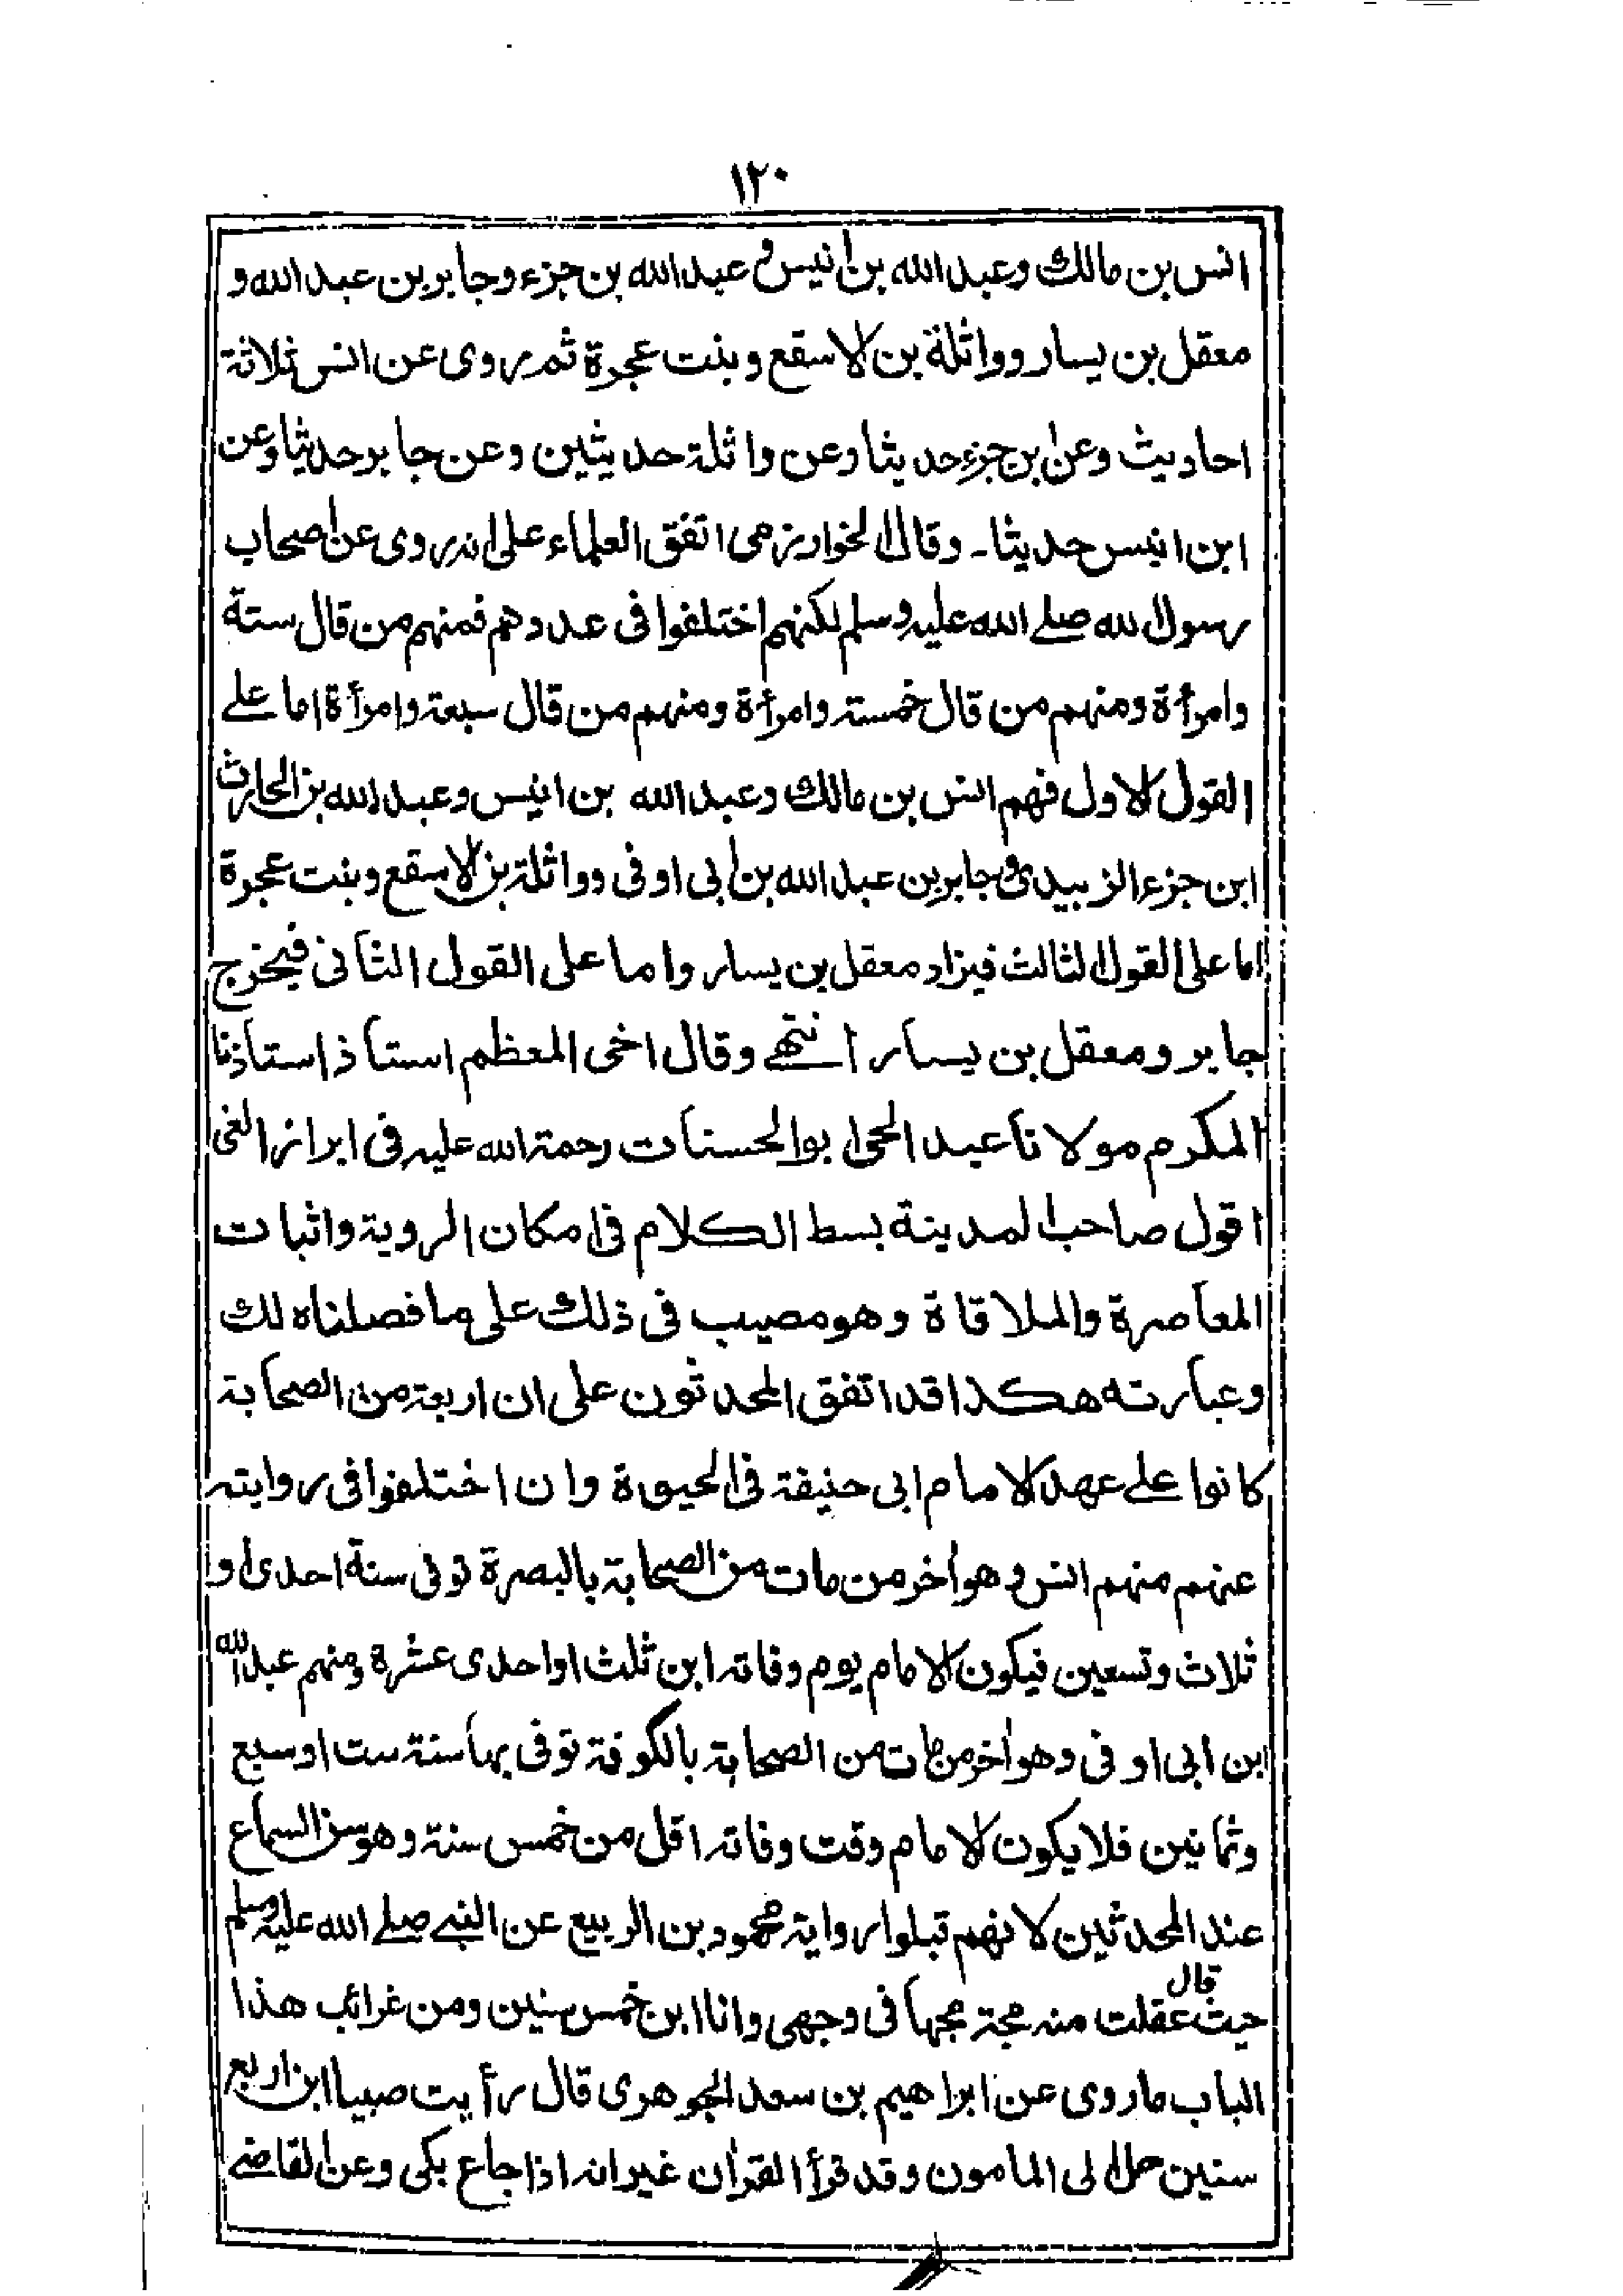 ١٢٠
انس بن مالك وعبد الله بن انيس و عبد الله بن جزء وجابر بن عبد الله و
معقل بن يسار وواثلة بن الاسقع وبنت عجرة ثم روى عن انس ثلاثة
احاديث وعن ابن جزء حديثا وعن واثلة حديثين وعن جابر حديثا وعن
ابن انيس حديثا۔ وقال الخوارزمى اتفق العلماء على انه روى عن اصحاب
رسول الله صلے الله عليه وسلم لكنهم اختلفوا فى عددهم فمنهم من قال ستة
وامرأة ومنهم من قال خمسة وامرأة ومنهم من قال سبعة وامرأة اما علے
القول الاول فهم انس بن مالك وعبد الله بن انيس وعبد الله بن الحارث
ابن جزء الزبيدى وجابر بن عبد الله بن ابى اوفى وواثلة بن الاسقع وبنت عجرة
اما على القول الثالث فيزاد معقل بن يسار واما على القول الثانى فيخرج
جابر ومعقل بن يسار انتهے وقال اخى المعظم استاذ استاذنا
المكرم مولانا عبد الحى ابو الحسنات رحمة الله عليه فى ابراز الغى
اقول صاحب المدينة بسط الكلام فى امكان الروية واثبات
المعاصرة والملاقاة وهو مصيب فى ذلك على ما فصلناه لك
وعبارته هكذا قد اتفق المحدثون على ان اربعة من الصحابة
كانوا علے عهد الامام ابى حنيفة فى الحيوة وان اختلفوا فى روايته
عنهم منهم انس وهو اخر من مات من الصحابة بالبصرة توفى سنة احدى او
ثلاث وتسعين فيكون الامام يوم وفاته ابن ثلث او احدى عشرة ومنهم عبد الله
ابن ابى اوفى وهو اخر من مات من الصحابة بالكوفة توفى بها سنة ست او سبع
وثمانين فلا يكون الامام وقت وفاته اقل من خمس سنة وهو سن السماع
عند المحدثين لانهم قبلوا رواية محمود بن الربيع عن النبے صلے الله عليه وسلم
حيث قال عقلت منه مجة مجها فى وجهى وانا ابن خمس سنين ومن غرائب هذا
الباب ما روى عن ابراهيم بن سعد الجوهرى قال رأيت صبيا ابن اربع
سنين حمل الى المامون وقد قرأ القران غير انه اذا جاع بكى وعن القاضے